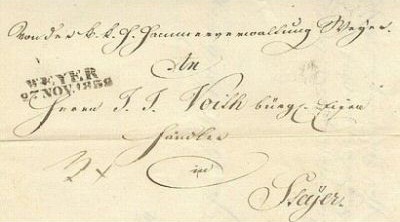 Von der k. k. H. Hammerverwaltung Weyer.
An
WEYER
27 NOV. 1838
Herrn J. J. Voith bürgl. Eisen
Händler
in
Steyer.